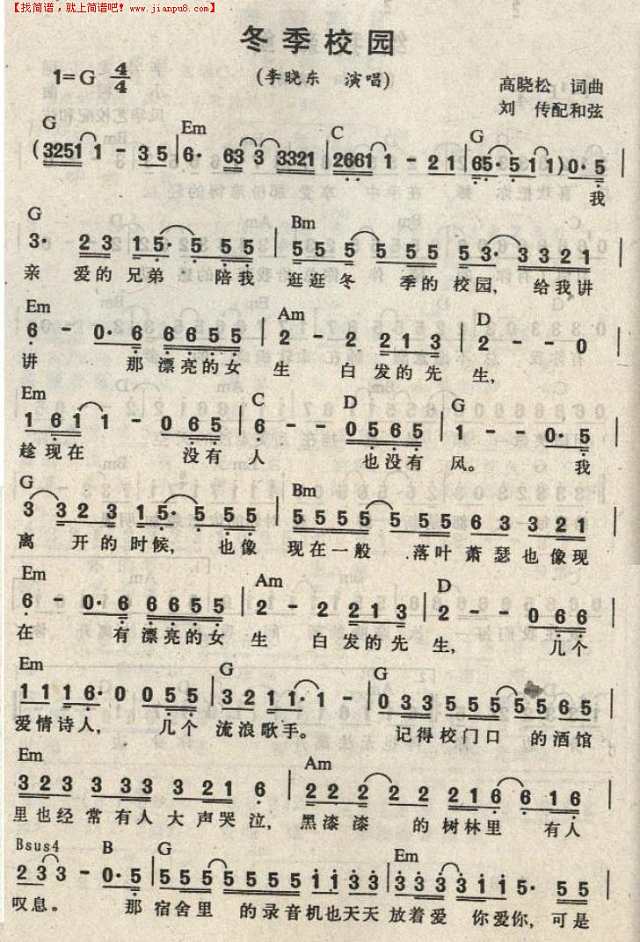 【找简谱，就上简谱吧！】
www.jianpu8.com
冬季校园
1=G 4/4 (李晓东 演唱) 高晓松 词曲
刘 传配和弦
G Em C G
(3251 1 - 35 | 6· 63 3 3321 | 2661 1 - 21 | 65·51 1) 0·5 |
我
G Bm
3· 23 15· 555 | 555 5555 53· 3321 |
亲 爱的兄弟 陪我 逛逛冬 季的校园, 给我讲
Em Am D
6 - 0·6 6655 | 2 - 2213 | 2 - - 0 |
讲 那漂亮的女 生 白发的先 生,
Em C D G
1 61 1 - 0565 | 6 - 0565 | 1 - - 0·5 |
趁现在 没有人 也没有 风。 我
G Bm
3 323 15· 055 | 5555 555 63 3321 |
离 开的时候, 也像 现在一般 落叶萧瑟也像现
Em Am D
6 - 0·6 6655 | 2 - 2213 | 2 - - 066 |
在 有漂亮的女 生 白发的先 生, 几个
Em G G D
1116· 0055 | 3211· 1 - | 0333 555 5565 |
爱情诗人, 几个 流浪歌手。 记得校门口 的酒馆
Em Am
323 333 3216 | 222 222 2166 616 |
里也经常有人大声哭泣, 黑漆漆 的树林里 有人
Bsus4 B G Em
233 - 0·5 | 555 5555 1133 | 333 1115· 035 |
叹息。 那宿舍里 的录音机也天天 放着爱 你爱你, 可是